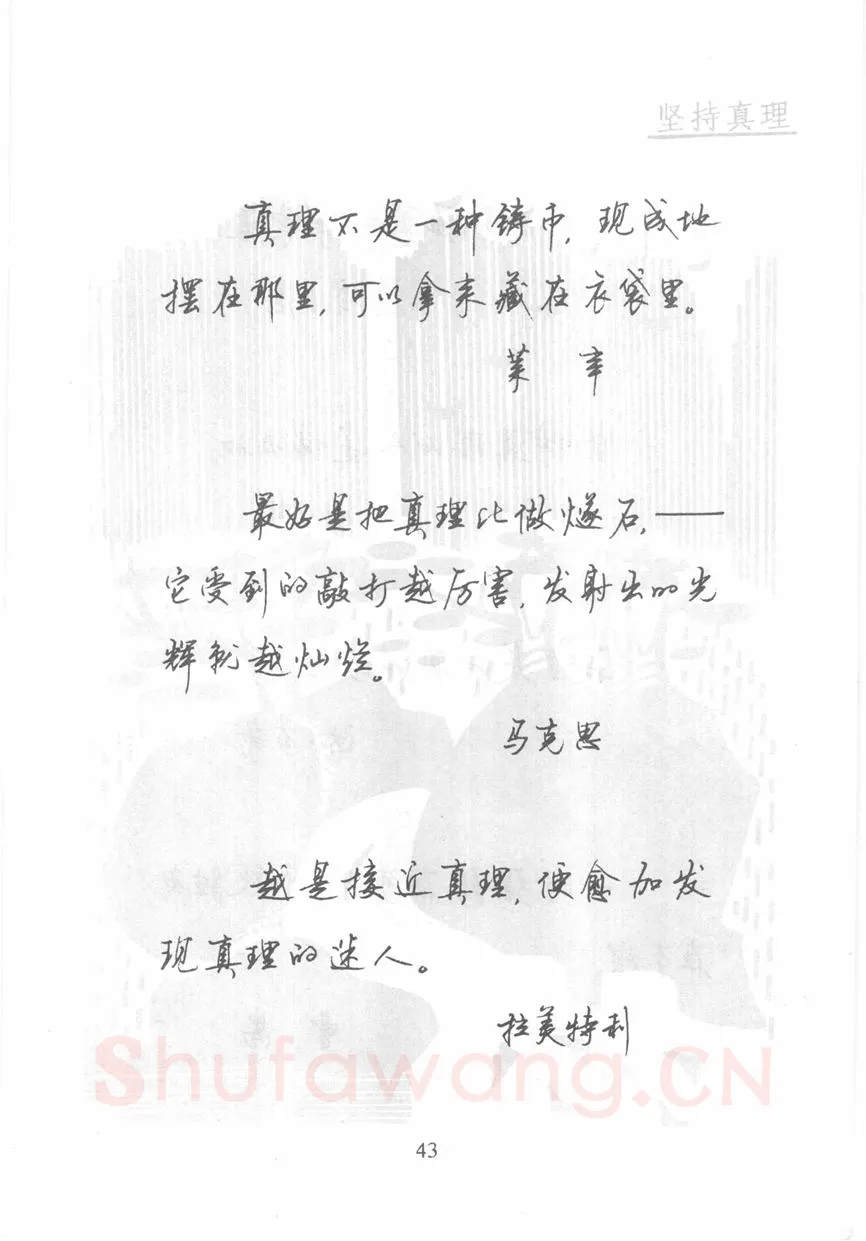 坚持真理
真理不是一种铸币，现成地
摆在那里，可以拿来藏在衣袋里。
莱 辛
最好是把真理比做燧石，——
它受到的敲打越厉害，发射出的光
辉就越灿烂。
马克思
越是接近真理，便愈加发
现真理的迷人。
拉美特利
Shufawang.CN
43